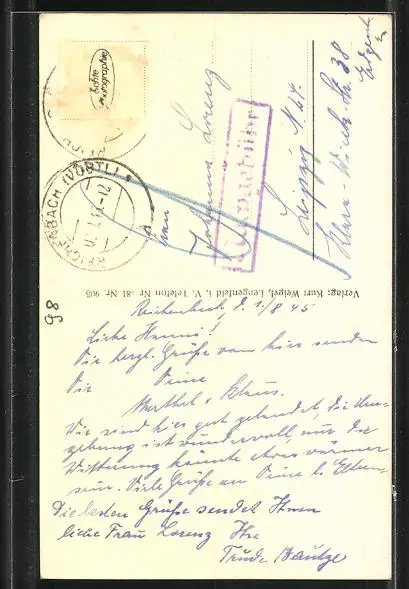 Echte
Photographie
REICHENBACH (VOGTL)
Frau
Johanna Lorenz
Leipzig N 24.
Str. 38
Verlag: Kurt Weigel, Lengenfeld i. V. Telefon Nr. 905
98
Reichenbach, d. 1./8 45
Liebe Hanni!
Die herzl. Grüße von hier senden
Dir Deine
Marthel u. Klaus.
Wir sind hier gut gelandet, die Um-
gebung ist wundervoll, nur die
Witterung könnte etwas wärmer
sein. Viele Grüße an Deine l. Eltern
Die besten Grüße sendet Ihnen
liebe Frau Lorenz Ihre
Trude Bautze